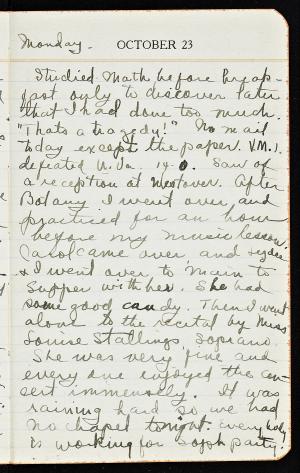 Monday. OCTOBER 23
Studied Math before break-
fast only to discover later
that I had done too much.
"Thats a tragedy!" No mail
today except the paper. V.M.I.
defeated U. Va. 19-0. Saw of
a reception at Westover. After
Botany I went over and
practiced for an hour
before my music lesson.
Carol came over and Lydee
& I went over to Main to
Supper with her. She had
some good candy. Then I went
alone to the recital by Miss
Louise Stallings, Soprano.
She was very fine and
every one enjoyed the con-
cert immensely. It was
raining hard so we had
no chapel tonight. Everybody
is working for soph party.